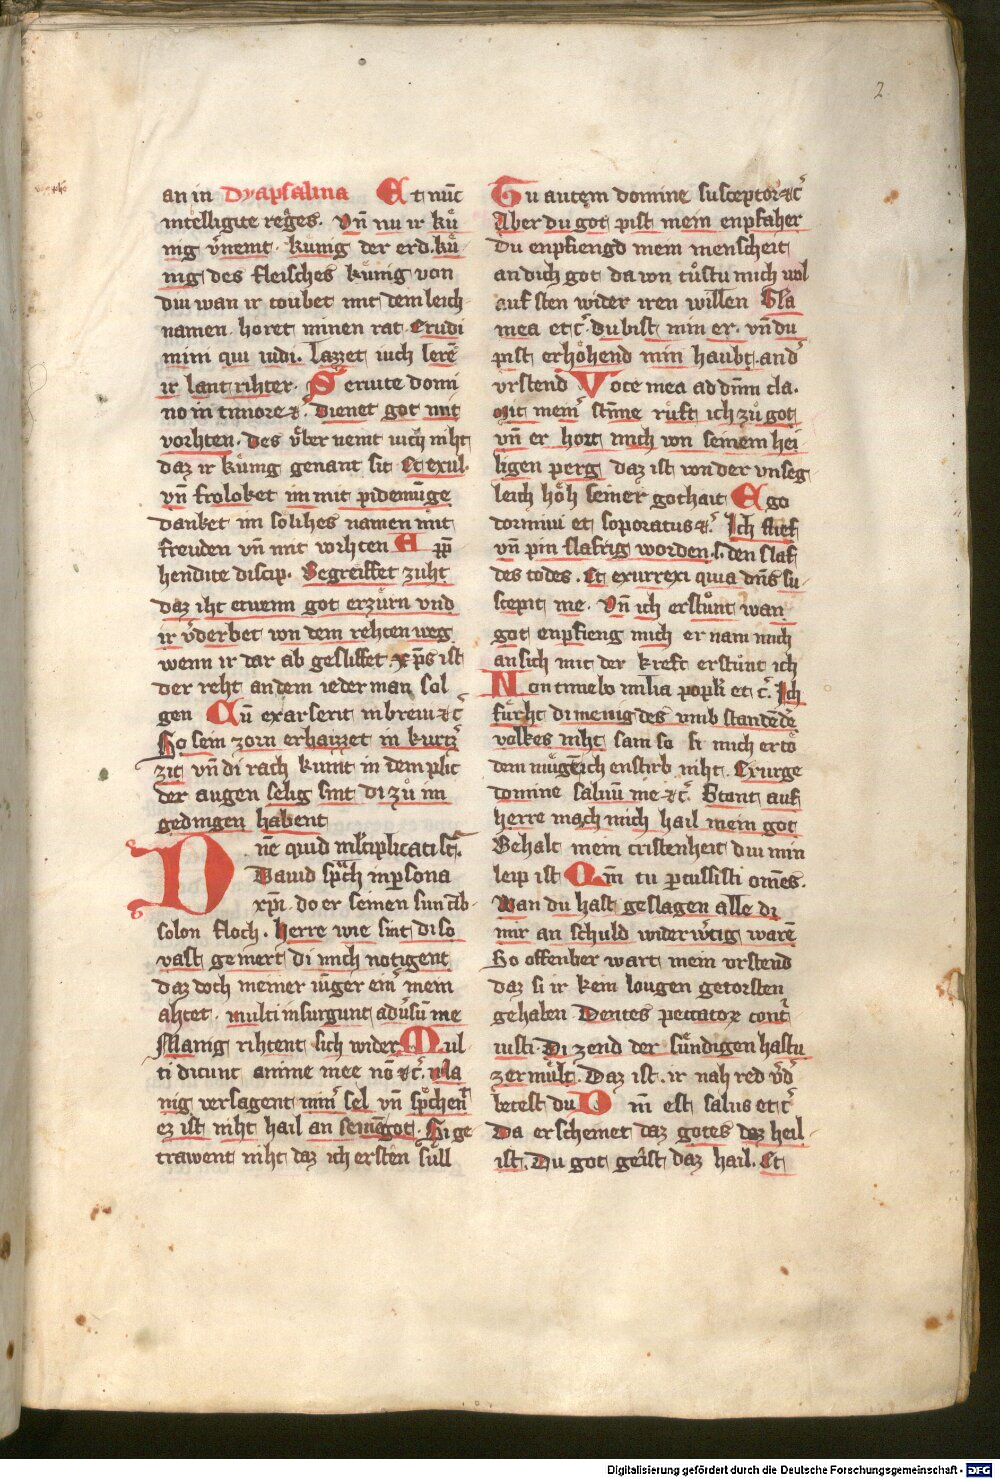 2
an in Dyapsalma Et nūc
intelligite reges. Vn̄ nu ir kuͤ
nig v̓nemt. kunig der erd. kuͤ
nig des fleisches kuͤnig von
diu wan ir toubet mit dem leich
namen. horet minen rat. Erudi
mini qui iudi. Lazzet iuch lerē
ir lantrihter. Seruite domi
no in timore ⁊c. Dienet got mit
vorhten. Des vͤber nemt iuch niht
daz ir kuͤnig genant sit Et exul.
vn̄ froloket im mit pidemūge
danket im soliches namen mit
freuden vn̄ mit vorhten Appͬ
hendite discip. Begreiffet zuht
daz iht etwenn got erzuͤrn vnd
ir v̓derbet von dem rehten weg
wenn ir dar ab gesliffet. xp̄s ist
der reht an dem ieder man sol
gen Cū exarserit in breui ⁊c̓
So sein zorn erhaizzet in kurtz̓
zit vn̄ di rach kumt in dem plic
der augen selig sint di zuͦ im
gedingen habent
Dn̄e quid ml̓tiplicati st̄.
Dauid sprͣch in ꝑsona
xp̄i. do er seinen sun ab
solon floch. Herre wie sint di so
vast gemert di mich notigent
daz doch meiner iūger ein̓ mein
ahtet. multi insurgunt adūsū me
Manig rihtent sich wider Mul
ti dicunt anime mee nō ⁊c̓. Ma
nig versagent min̓ sel vn̄ sprͤchen
ez ist niht hail an seinē got. Si ge
trawent niht daz ich ersten suͤll
Tu autem domine susceptor ⁊c̓
Aber du got pist mein enpfaher
Du enpfiengd mein menscheit
an dich got da von tuͦstu mich wol
auf sten wider iren willen Gl̓a
mea et c̓. du bist min er. vn̄ du
pist erhoͤhend min haubt. and̓
vrstend Voce mea ad dn̄m cla.
Mit mein̓ stīme ruͤft ich zuͦ got
vn̄ er hort mich von seinem hei
ligen perg daz ist von der vnseg
leich hoͤh seiner gothait Ego
dormiui et soporatus ⁊c̓. Ich slief
vn̄ pin slafrig worden. s. den slaf
des todes. Et exurrexi quia dn̄s su
scepit me. Vn̄ ich erstuͦnt wan
got enpfieng mich er nam mich
an sich mit der kreft erstuͦnt ich
Non timebo milia popl̓i et c̓. Ich
fuͤrcht di menig des vmb standēdē
volkes niht sam so si mich ertoͤ
dem muͤgē ich enstirb niht. Exurge
domine saluū me ⁊c̓. Stant auf
herre mach mich hail mein got
Behalt mein cristenheit diu min
leip ist Qm̄ tu ꝑcussisti om̄es.
Wan du hast geslagen alle di
mir an schuld widerw̓tig warē
So offenber wart mein vrstend
daz si ir kein lougen getorsten
gehaben Dentes peccator̄ cont̓
iusti. Di zend der suͤndigen hastu
zermuͤlt. Daz ist. ir nah red v̓d̓
betest du Dn̄i est salus et c̓
Da erscheinet daz gotes daz heil
ist. Du got geist daz hail. Et
Digitalisierung gefördert durch die Deutsche Forschungsgemeinschaft - DFG